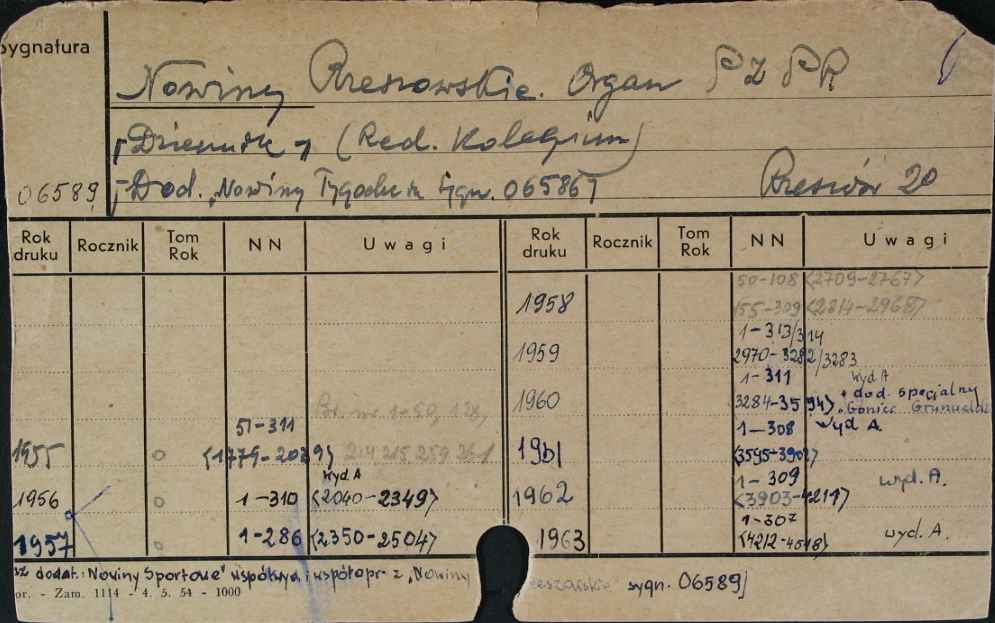 Sygnatura
Nowiny Rzeszowskie. Organ PZPR
[Dziennik] (Red. Kolegium)
06589
[Dod. „Nowiny Tygodnia sygn. 06586] Rzeszów 20
Rok druku Rocznik Tom Rok NN Uwagi Rok druku Rocznik Tom Rok NN Uwagi
50-108 <2709-2767>
1958 155-309 <2814-2968>
1-313/314
1959 2970-3282/3283
1-311 wyd A
1960 3284-3594> + dod. specjalny
„Goniec Grunwaldzki
51-311 Br. nr. 1-50, 128, 1-308 wyd A.
1955 <1779-2039> 214, 215, 259, 261 1961 <3595-3902>
wyd A 1-309 wyd. A.
1956 1-310 <2040-2349> 1962 <3903-4211>
1-307
1957 1-286 <2350-2504> 1963 <4212-4518> wyd. A.
dodat: „Nowiny Sportowe" współwyd i współopr z „Nowiny Rzeszowskie sygn. 06589]
or. - Zam. 1114 - 4. 5. 54 - 1000